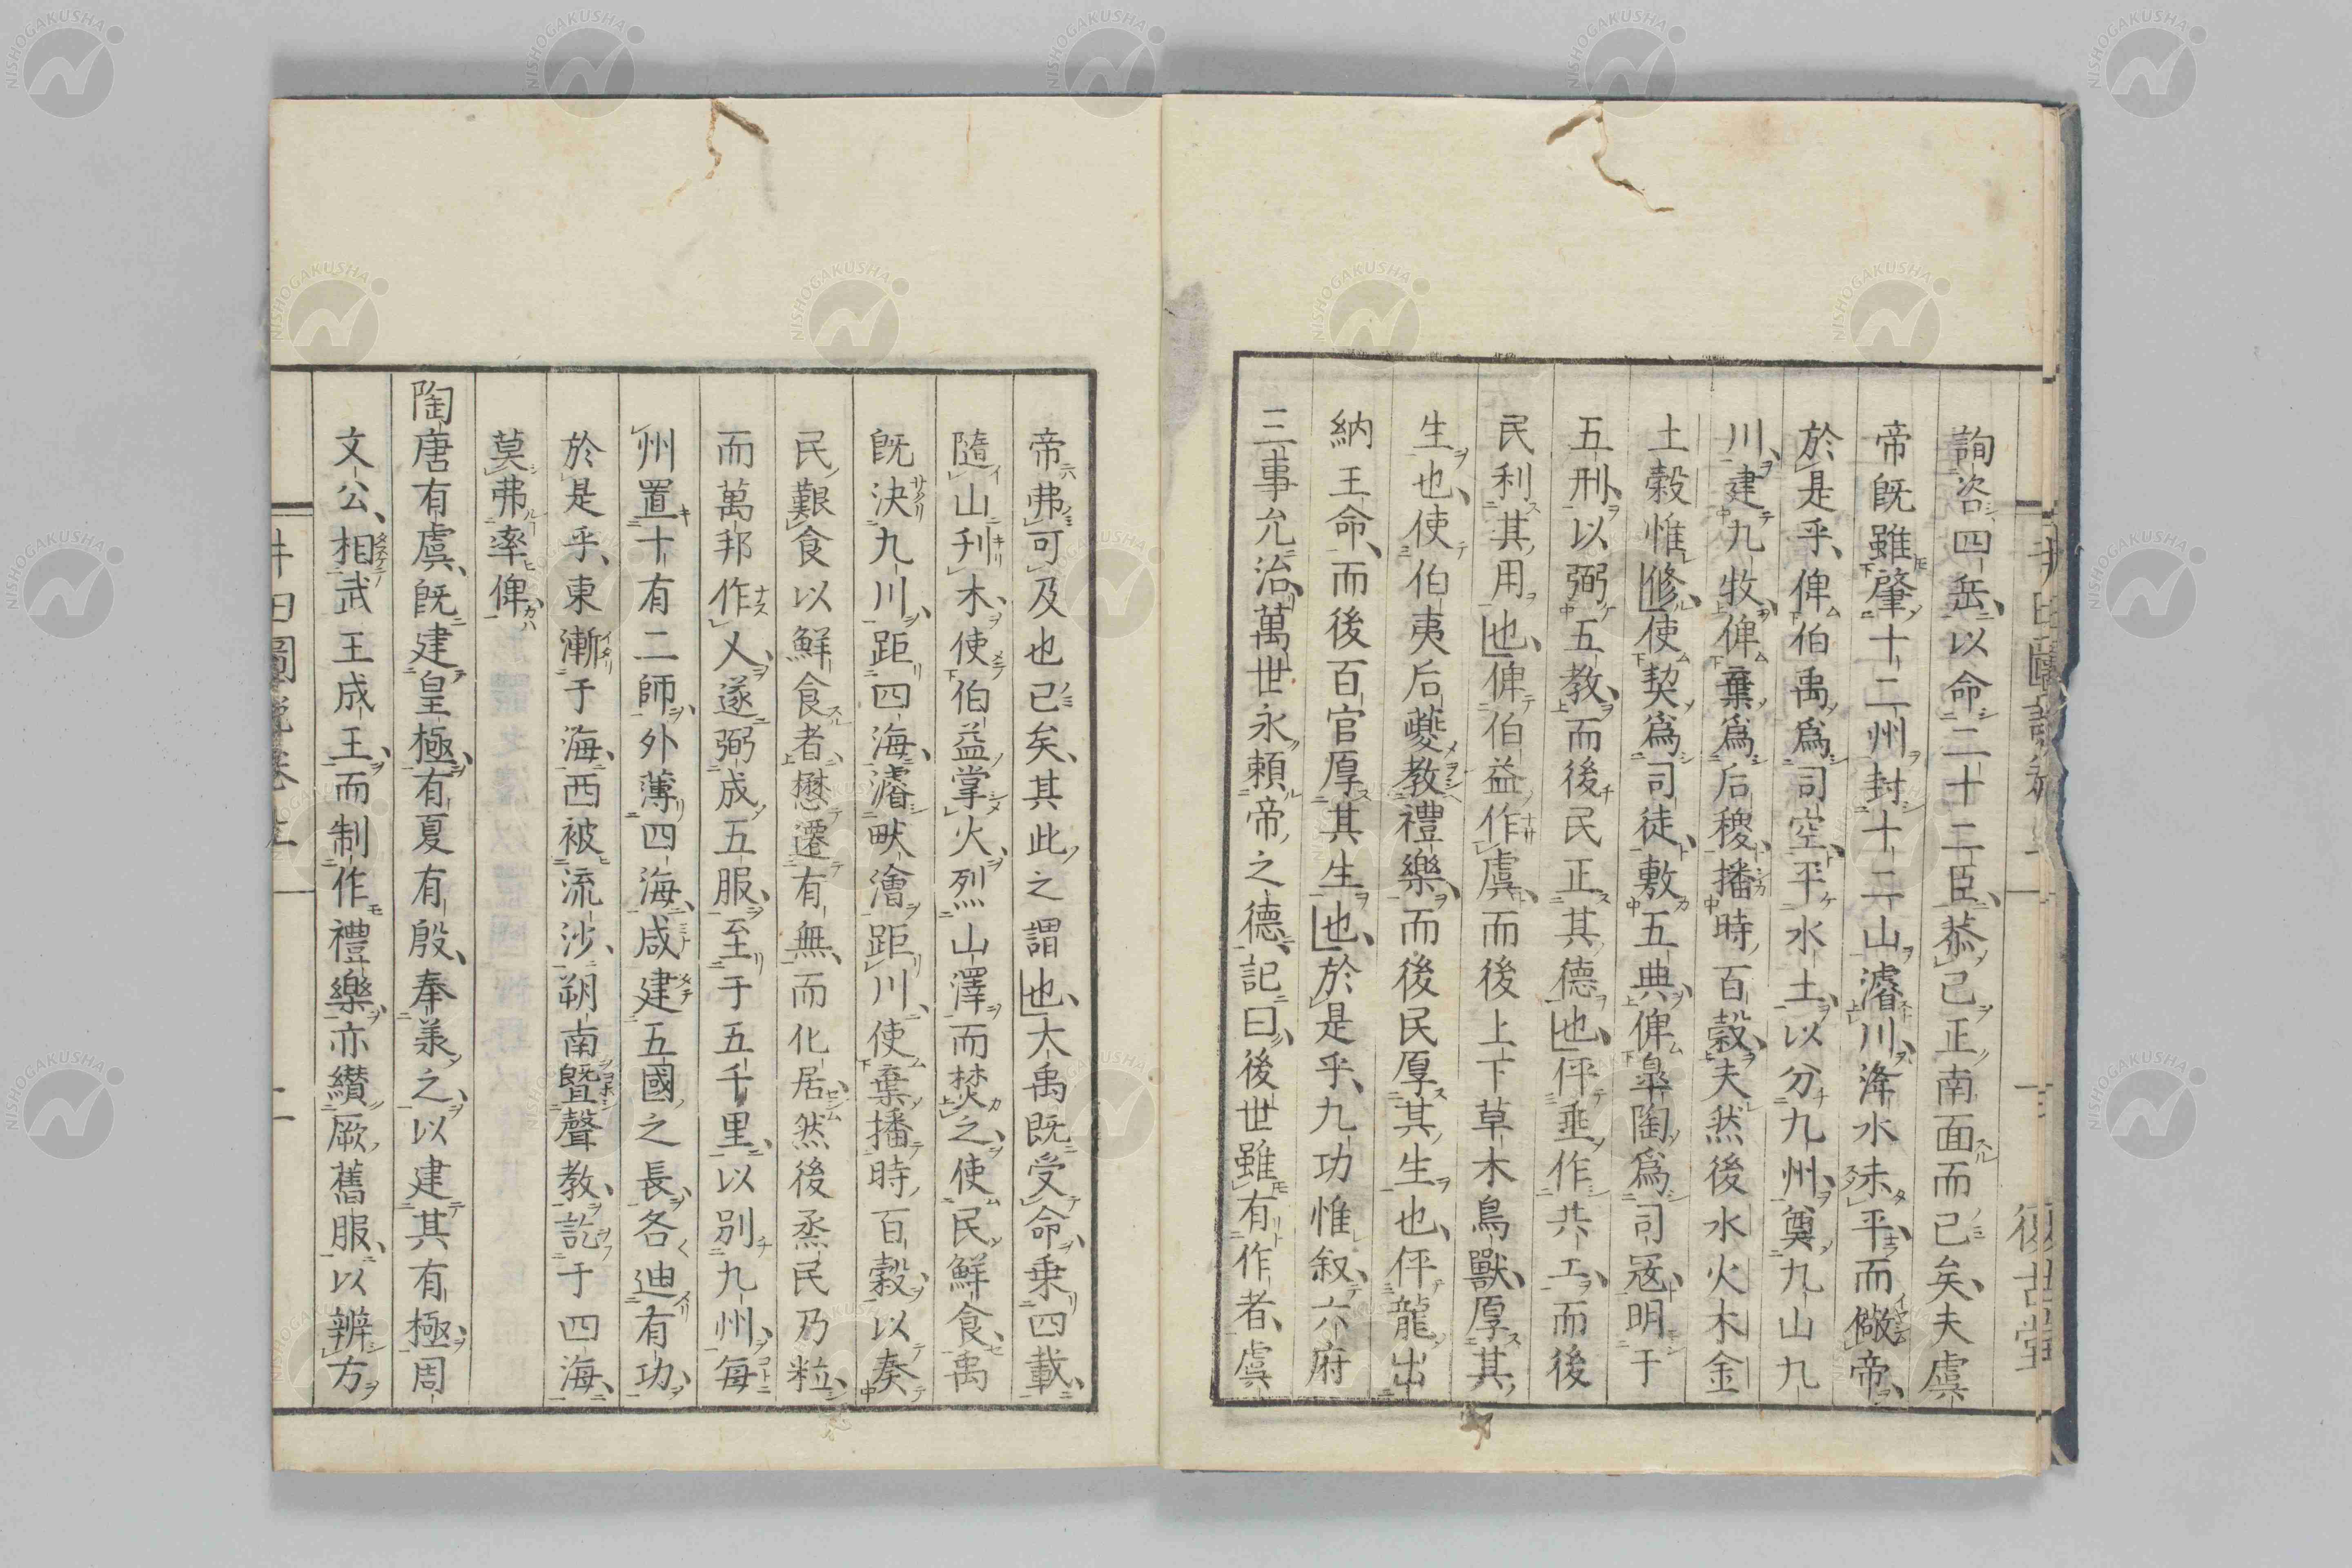 詢咨四岳以命二十二臣恭己正南面而已矣夫虞
帝既雖肇十二州封十二山濬川洚水未平而儆帝
於是乎俾伯禹爲司空平水土以分九州奠九山九
川建九牧俾棄爲后稷播時百穀夫然後水火木金
土穀惟修使契爲司徒敷五典俾皐陶爲司冦明于
五刑以弼五教而後民正其德也伻垂作共工而後
民利其用也俾伯益作虞而後上下草木鳥獸厚其
生也使伯夷后夔教禮樂而後民厚其生也伻龍出
納王命而後百官厚其生也於是乎九功惟叙六府
三事允治萬世永頼帝之德記曰後世雖有作者虞
帝弗可及也已矣其此之謂也大禹既受命乗四載
隨山刋木使伯益掌火烈山澤而焚之使民鮮食禹
既決九川距四海濬畎澮距川使棄播時百穀以奏
民艱食以鮮食者懋遷有無而化居然後烝民乃粒
而萬邦作乂遂弼成五服至于五千里以別九州每
州置十有二師外薄四海咸建五國之長各迪有功
於是乎東漸于海西被流沙朔南曁聲教訖于四海
莫弗率俾
陶唐有虞既建皇極有夏有殷奉羕之以建其有極周
文公相武王成王而制作禮樂亦纘厥舊服以辨方
井田圖說卷上 二